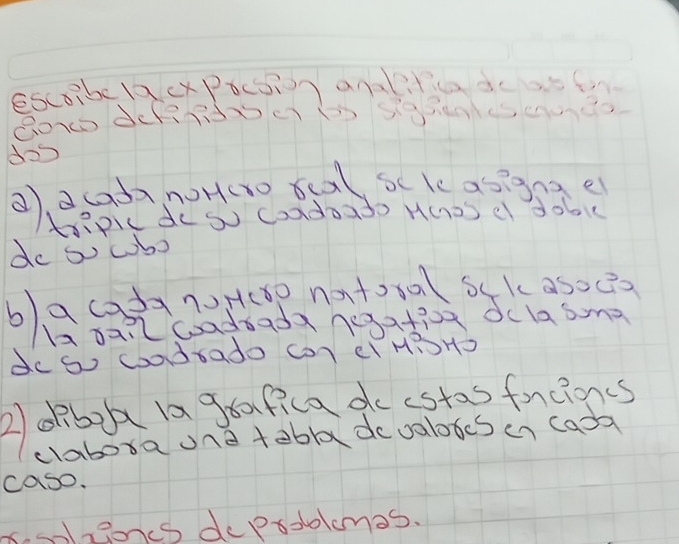 escribe la expresión analítica de las fun-
ciones definidas en los siguientes enuncia-
dos
a) a cada número real se le asigna el
triple de su cuadrado menos el doble
de su cubo
b) a cada número natural se le asocia
la raíz cuadrada negativa de la suma
de su cuadrado con el mismo
2) dibuja la grafica de estas funciones
elabora una tabla de valores en cada
caso.
resoluciones de problemas.